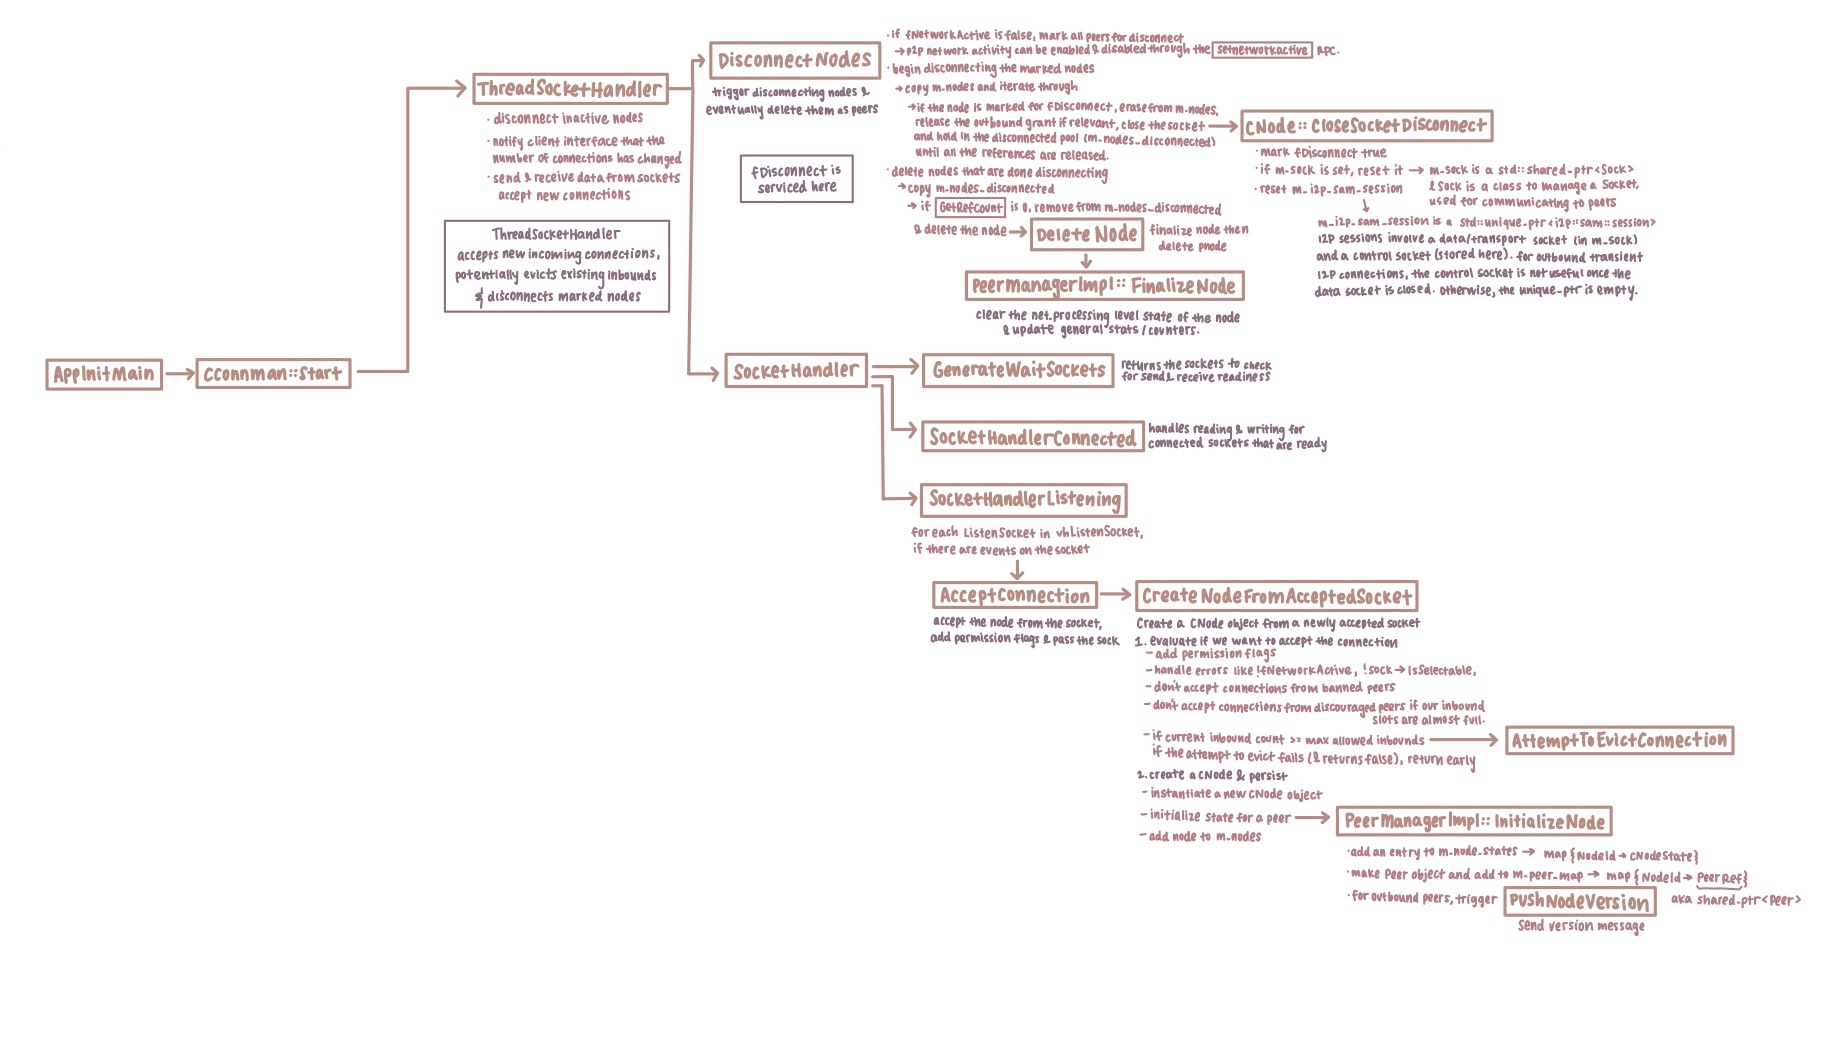 AppInitMain
CConnman::Start
ThreadSocketHandler
· disconnect inactive nodes
· notify client interface that the
number of connections has changed
· send & receive data from sockets
accept new connections
ThreadSocketHandler
accepts new incoming connections,
potentially evicts existing inbounds
& disconnects marked nodes
DisconnectNodes
trigger disconnecting nodes &
eventually delete them as peers
fDisconnect is
serviced here
· if fNetworkActive is false, mark all peers for disconnect
→ P2P network activity can be enabled & disabled through the setnetworkactive RPC.
· begin disconnecting the marked nodes
→ copy m_nodes and iterate through
→ if the node is marked for fDisconnect, erase from m_nodes,
release the outbound grant if relevant, close the socket
and hold in the disconnected pool (m_nodes_disconnected)
until all the references are released.
· delete nodes that are done disconnecting
→ copy m_nodes_disconnected
→ if GetRefCount is 0, remove from m_nodes_disconnected
& delete the node →
DeleteNode
finalize node then
delete pnode
PeerManagerImpl:: FinalizeNode
clear the net_processing level state of the node
& update general stats / counters.
CNode:: CloseSocketDisconnect
· mark fDisconnect true
· if m_sock is set, reset it → m_sock is a std::shared_ptr<Sock>
& Sock is a class to manage a Socket,
used for communicating to peers
· reset m_i2p_sam_session
m_i2p_sam_session is a std::unique_ptr<i2p::sam::session>
I2P sessions involve a data/transport socket (in m_sock)
and a control socket (stored here). for outbound transient
I2P connections, the control socket is not useful once the
data socket is closed. otherwise, the unique_ptr is empty.
SocketHandler
GenerateWaitSockets
returns the sockets to check
for send & receive readiness
SocketHandlerConnected
handles reading & writing for
connected sockets that are ready
SocketHandlerListening
for each ListenSocket in vhListenSocket,
if there are events on the socket
AcceptConnection
accept the node from the socket,
add permission flags & pass the sock
CreateNodeFromAcceptedSocket
Create a CNode object from a newly accepted socket
1. evaluate if we want to accept the connection
- add permission flags
- handle errors like !fNetworkActive, !sock→IsSelectable,
- don't accept connections from banned peers
- don't accept connections from discouraged peers if our inbound
slots are almost full.
- if current inbound count >= max allowed inbounds
if the attempt to evict fails (& returns false), return early
AttemptToEvictConnection
2. create a CNode & persist
- instantiate a new CNode object
- initialize state for a peer
- add node to m_nodes
PeerManagerImpl:: InitializeNode
· add an entry to m_node_states → map {NodeId → CNodeState}
· make Peer object and add to m_peer_map → map {NodeId → PeerRef}
· for outbound peers, trigger PushNodeVersion
aka shared_ptr<Peer>
send version message